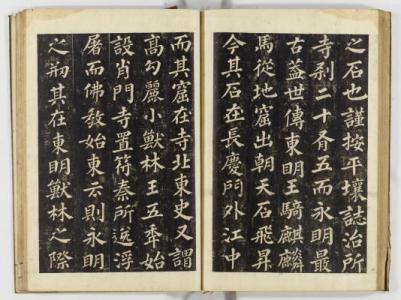 之石也謹按平壤誌治所
寺刹二十有五而永明最
古盖世傳東明王騎麒麟
馬從地窟出朝天石飛昇
今其石在長慶門外江中
而其窟在寺北東史又謂
高勾麗小獸林王五秊始
設肖門寺置符秦所送浮
屠而佛敎始東云則永明
之刱其在東明獸林之際